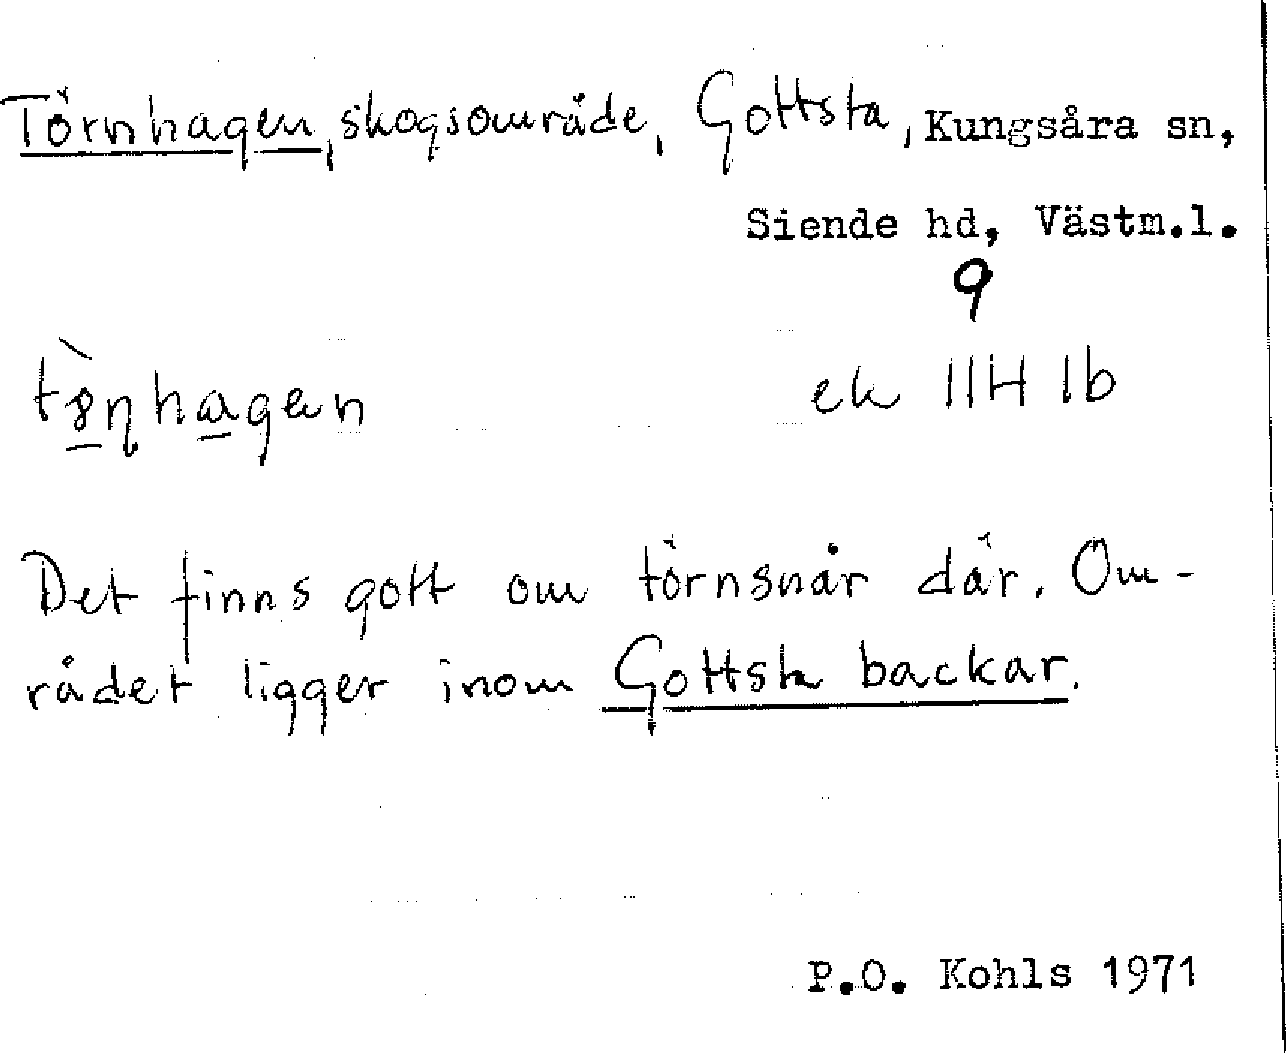 Törnhagen, skogsområde, Gottsta, Kungsåra sn,
Siende hd, Västm.l.
9
tö̀ṇhagen ek 11H 1b
Det finns gott om törnsnår där. Om-
rådet ligger inom Gottsta backar.
P.O. Kohls 1971